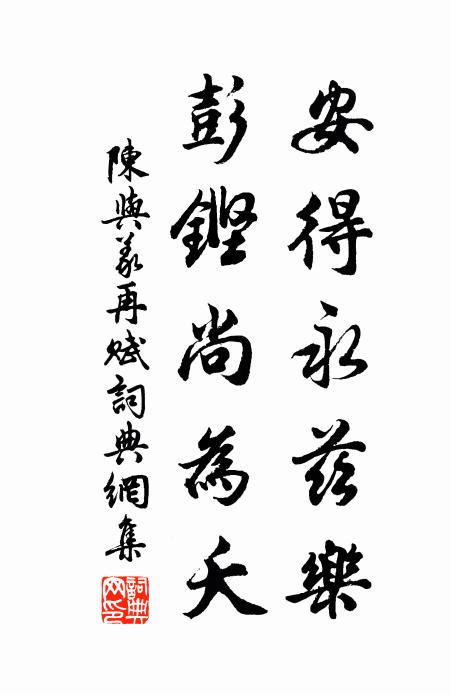 安得永茲樂
彭鏗尚為夭
陳與義再賦詞典網集
詞典网印